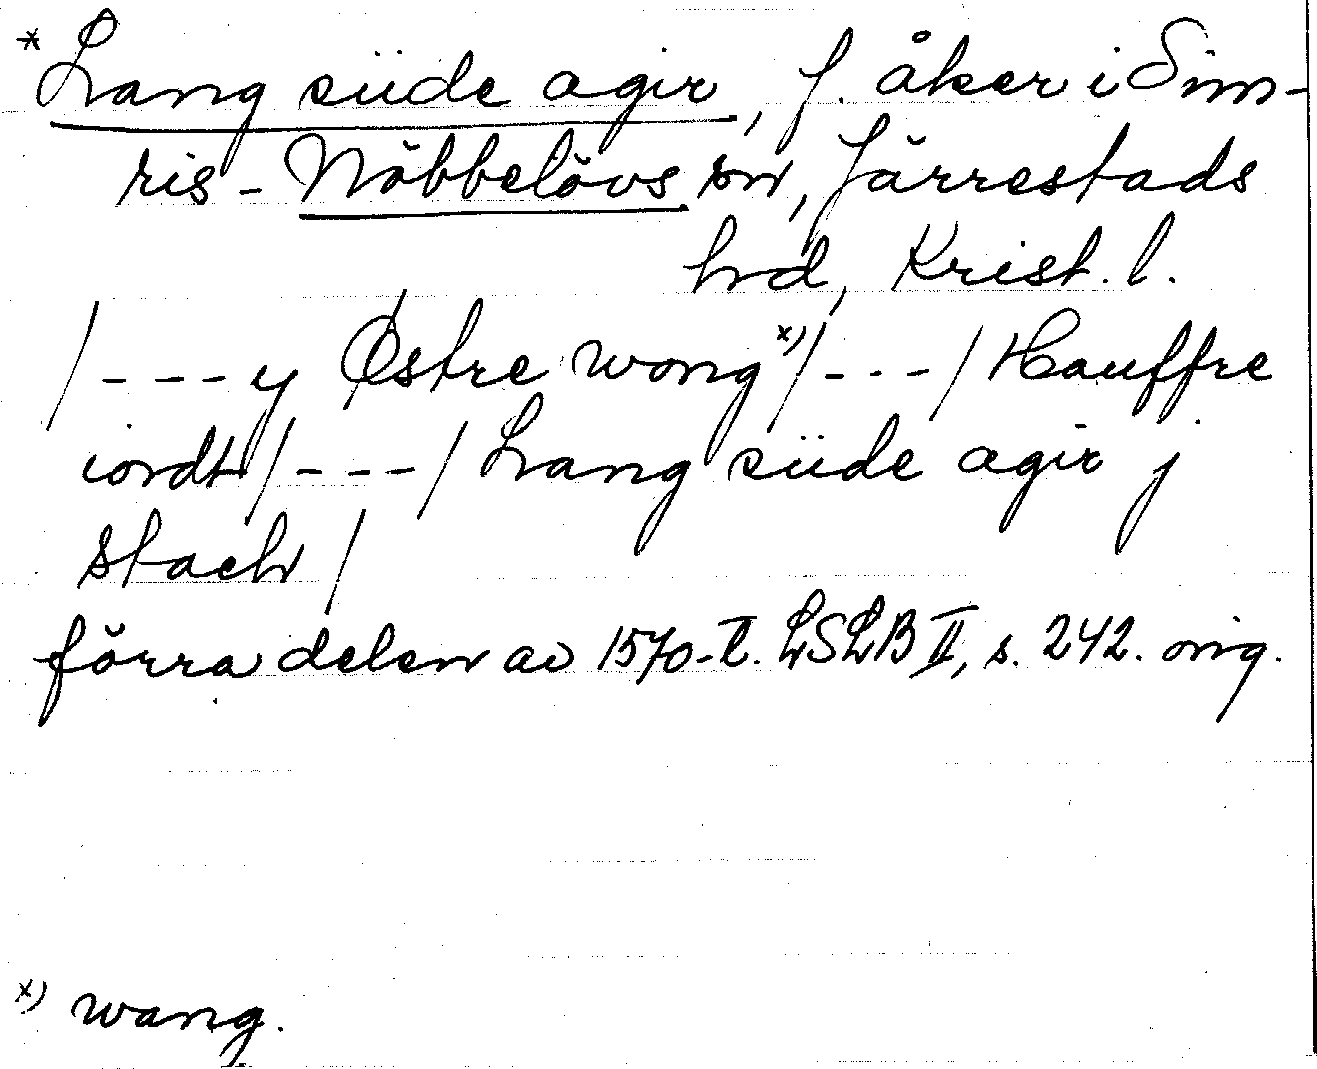 *Lang süde agir, f. åker i Sim-
ris-Nöbbelövs sn, Järrestads
hd, Krist. l.
/---y Østre wong x)/---/ Hauffre
iordt/---/ Lang süde agir j
stach/
förra delen av 1570-t. LSLB II, s. 242. orig.
x) wang.